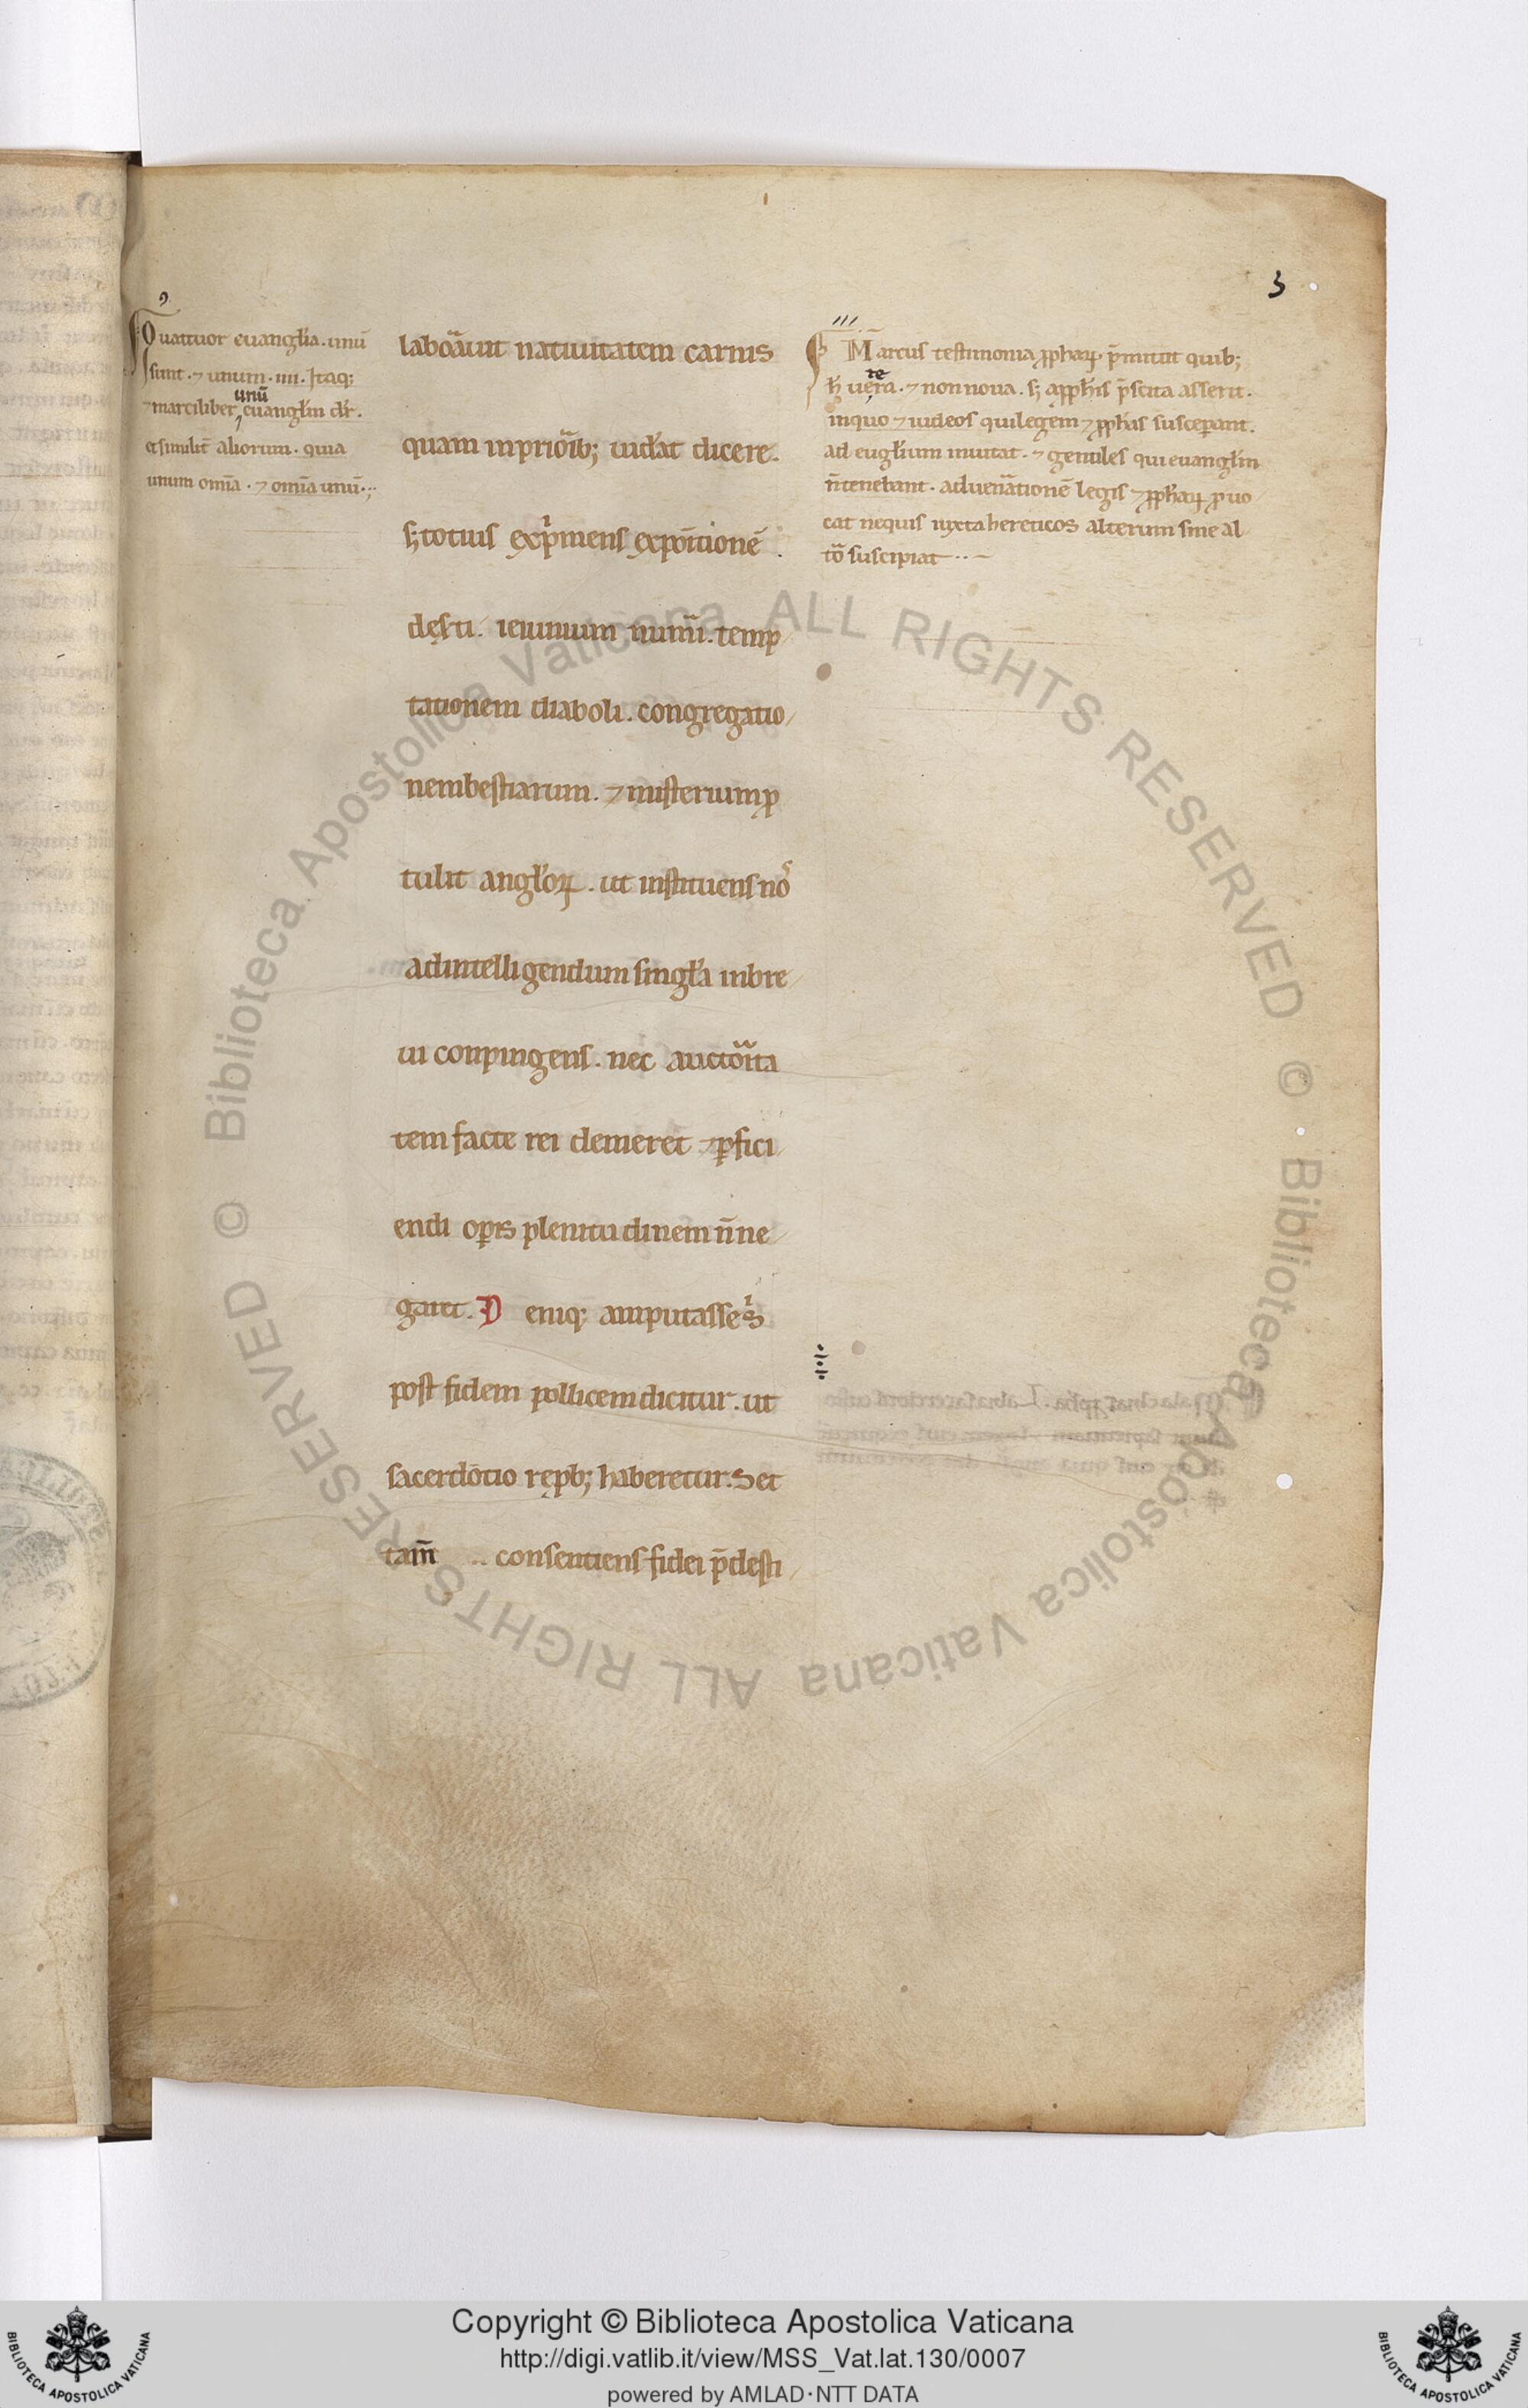 3
Quattuor euangl'ia. unū
sunt. ⁊ unum. iiii. Itaq;
⁊ marci liber unū euangl'm dr̄.
et similit̄ aliorum. quia
unum om̄ia. ⁊ om̄ia unū.
laborauit natiuitatem carnis
quam in priorib; uid'at dicere.
s; totius exp'mens expoitionē
dęserti. ieiunium num̄i. temp
tationem diaboli. congregatio
nem bestiarum. ⁊ misterium p
tulit angl'oꝝ. ut instituens nos
ad intelligendum singl'a in bre
ui conpingens. nec auctorita
tem facte rei demeret ⁊ ꝑfici
endi oꝑis plenitudinem n̄ ne
garet. Deniq; amputasse s'
post fidem pollicem dicitur. ut
sacerdotio rep̱b; haberetur. Set
tam̄ consentiens fidei p̄desti
III
Marcus testimonia ꝓphaꝝ p̄mittit quib;
h' uere. ⁊ non noua. s; a ꝓph'is p̄scita asserit.
in quo ⁊ iudeos qui legem ⁊ ꝓph'as susceꝑant.
ad eugl'ium inuitat. ⁊ gentiles qui euangl'm
n̄ tenebant. ad uenerationē legis ⁊ ꝓph'aꝝ ꝓuo
cat ne quis iuxta hereticos alterum sine al
tero suscipiat
© Biblioteca Apostolica Vaticana ALL RIGHTS RESERVED © Biblioteca Apostolica Vaticana ALL RIGHTS RESERVED
Copyright © Biblioteca Apostolica Vaticana
http://digi.vatlib.it/view/MSS_Vat.lat.130/0007
powered by AMLAD·NTT DATA
BIBLIOTECA APOSTOLICA VATICANA
BIBLIOTECA APOSTOLICA VATICANA